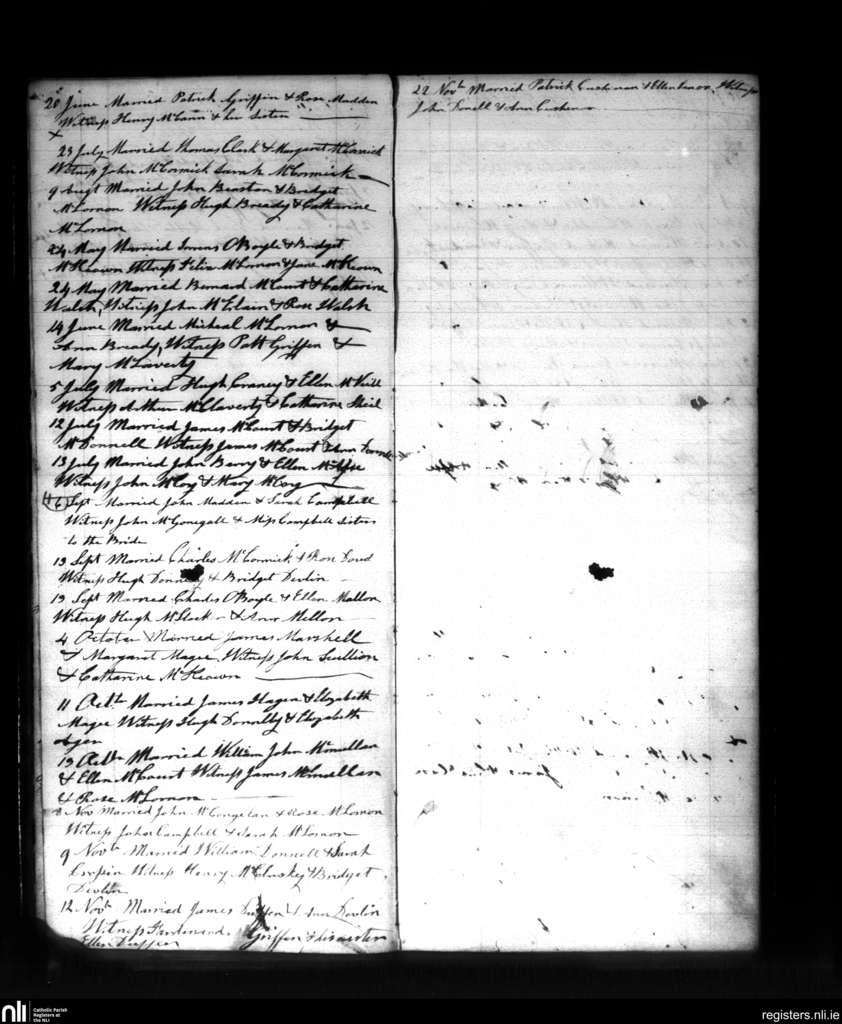 20 June Married Patrick Griffin & Rose Madden
Witness Henry McCann & her Sister
23 July Married Thomas Clark & Margaret
Witness John McCormick Sarah McCormick
9 Augt Married John Beaston & Bridget
McLornon Witness Hugh Bready & Catharine
McLornon
24 May Married O'Boyle & Bridget
McKeown Witness Felix McLornon & Jane McKeown
24 May Married Bernard McCourt & Catherine
Walsh, Witness John McElain & Rose Walsh
14 June Married Micheal McLornon &
Ann Bready, Witness Patt Griffen &
Mary McLaverty
5 July Married Hugh Craney & Ellen McNeill
Witness Arthur McClaverty & Catharine Shiel
12 July Married James McCourt & Bridget
McDonnell Witness James McCourt & Ann
13 July Married John Berry & Ellen
Witness John McCoy & Mary McCoy
6 Sept Married John Madden & Sarah Campbell
Witness John McGonegall & Miss Campbell Sister
to the Bride
13 Sept Married Charles McCormick & Rose Doud
Witness Hugh Donnelly & Bridget Devlin
13 Sept Married Charles O'Boyle & Ellen Mallon
Witness Hugh & Ann Mellon
4 October Married James Marshell
& Margaret Magee, Witness John Scullion
& Catharine McKeown
11 Octr Married James Hagen & Elizabeth
Magee Witness Hugh Donnelly & Elizabeth
Agen
13 Octr Married William John McMullan
& Ellen McCourt Witness James McMullan
& Rose McLornon
Nov Married John & Rose McLornon
Witness John Campbell & Sarah McLornon
9 Novbr Married William Donnell & Sarah
Witness Henry McCluskey & Bridget
Devlin
12 Novr Married James & Ann Devlin
Witness Griffen & his sister
Ellen
22 Novbr Married Patrick & Ellen Witness
John & Ann
nli
Catholic Parish
Registers at
the NLI
registers.nli.ie